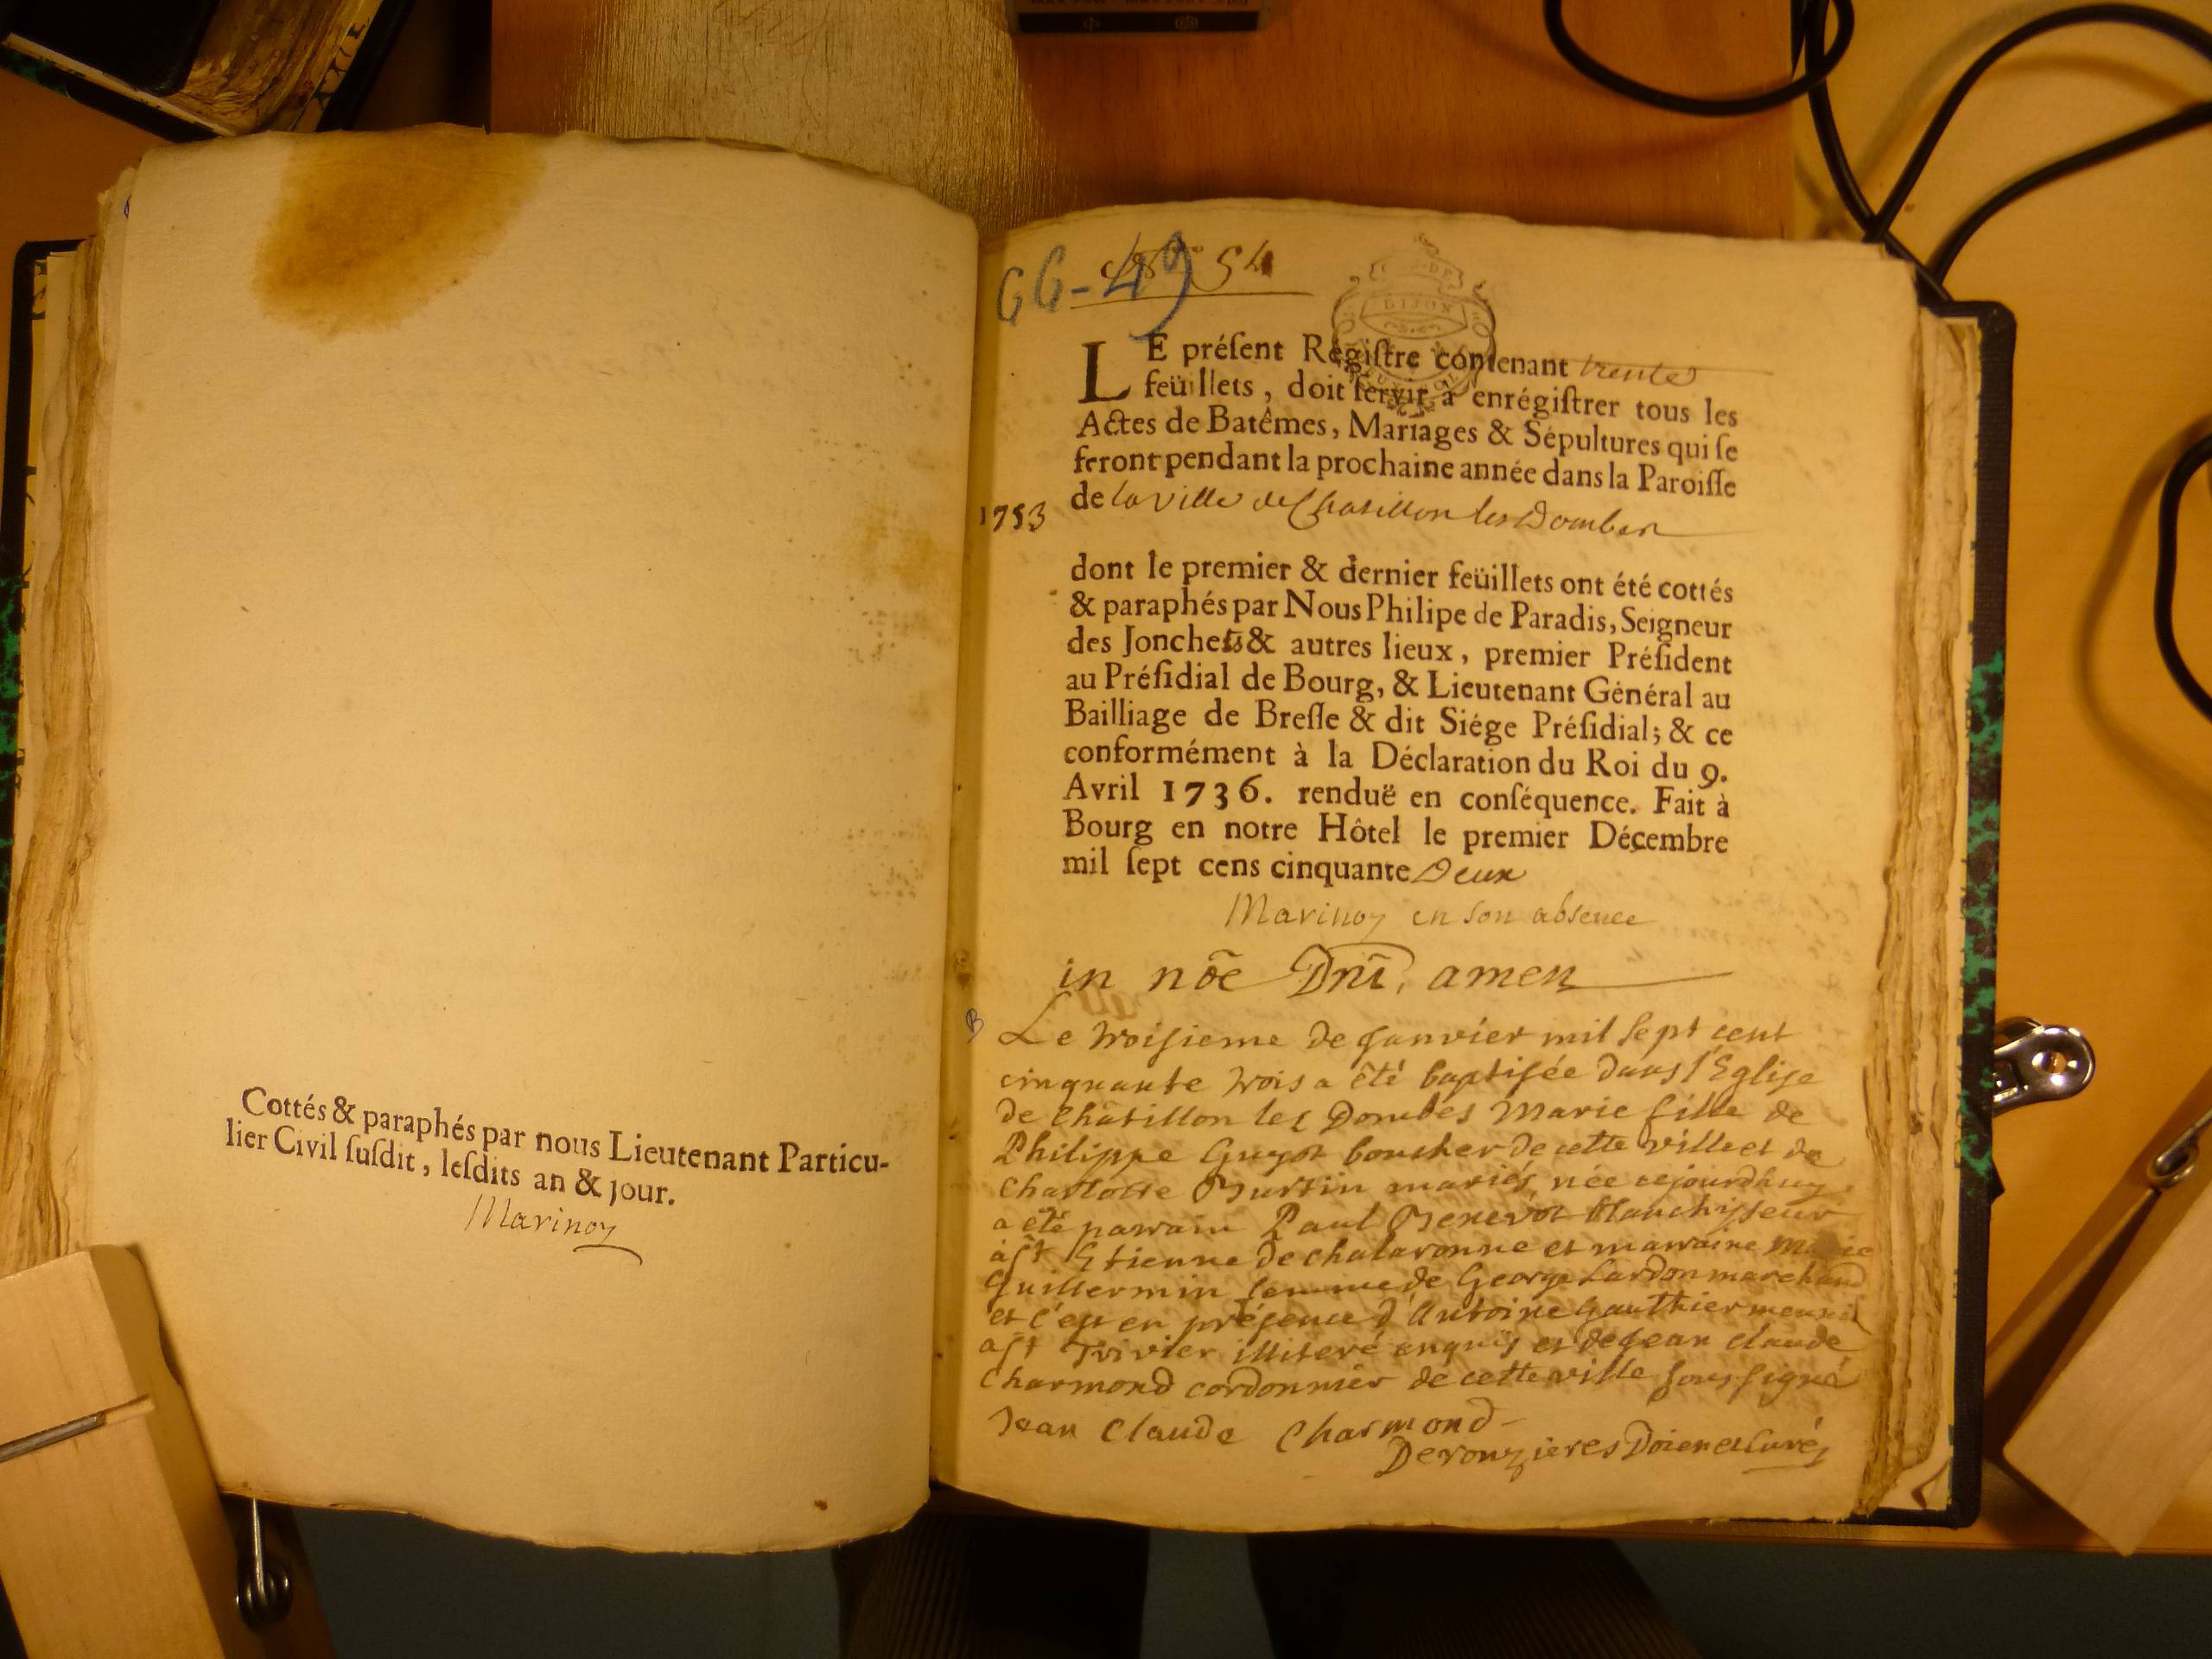 Cottés & paraphés par nous Lieutenant Particu-
lier Civil ſuſdit, leſdits an & jour.
Marinoy
GG-49 54
LE préſent Regiſtre contenant trente
feüillets, doit ſervir à enrégiſtrer tous les
Actes de Batêmes, Mariages & Sépultures qui ſe
feront pendant la prochaine année dans la Paroiſſe
de la ville de Chatillon les Dombes
1753
dont le premier & dernier feüillets ont été cottés
& paraphés par Nous Philipe de Paradis, Seigneur
des Jonchets & autres lieux, premier Préſident
au Préſidial de Bourg, & Lieutenant Général au
Bailliage de Breſſe & dit Siége Préſidial; & ce
conformément à la Déclaration du Roi du 9.
Avril 1736. renduë en conſéquence. Fait à
Bourg en notre Hôtel le premier Décembre
mil ſept cens cinquante Deux
Marinoy en son absence
in nōe Dnī, amen
B
Le troisieme de janvier mil sept cent
cinquante trois a été baptisée dans l'Eglise
de Châtillon les Dombes Marie fille de
Philippe Guyot boucher de cette ville et de
Charlotte Murtin mariés, née cejourdhuy,
a été parrain Paul blanchisseur
à st Etienne de chalaronne et marraine Marie
Guillermin femme de George Lardon marchand
et c'est en présence d'Antoine Gauthier
a st Trivier illiteré enquis et de jean claude
Charmond cordonnier de cette ville soussigné
Jean Claude Charmond
Derouzieres Doien et Curé